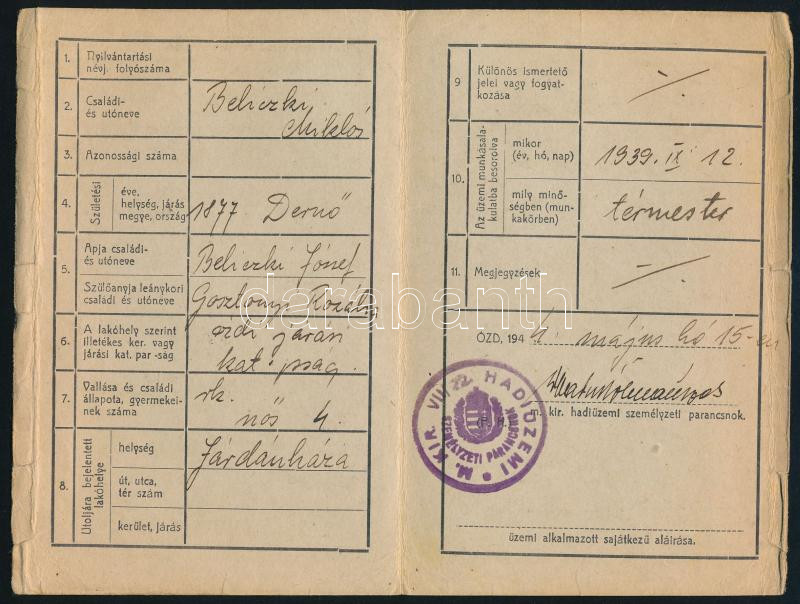 1. Nyilvántartási
névj. folyószáma
2. Családi-
és utóneve
Beliczki
Miklós
3. Azonossági száma
4. Születési
éve,
helység, járás
megye, ország
1877 Dernő
5. Apja családi-
és utóneve
Beliczki József
Szülőanyja leánykori
családi és utóneve
Gosztonyi
6. A lakóhely szerint
illetékes ker. vagy
járási kat. par -ság
ózdi járási
kat. psság
7. Vallása és családi
állapota, gyermekei-
nek száma
rk.
nős 4.
8. Utoljára bejelentett
lakóhelye
helység
Járdánháza
út, utca,
tér szám
kerület, járás
9 Különös ismertető
jelei vagy fogyat-
kozása
10. Az üzemi munkásala-
kulatba besorolva
mikor
(év, hó, nap)
1939. IX 12.
mily minő-
ségben (mun-
kakörben)
térmester
11. Megjegyzések
ÓZD, 194 május hó 15-én
m. kir. hadiüzemi személyzeti parancsnok.
(P. H.)
M. KIR. VII/22. HADIÜZEMI
SZEMÉLYZETI PARANCSNOK
üzemi alkalmazott sajátkezű aláírása.
darabanth